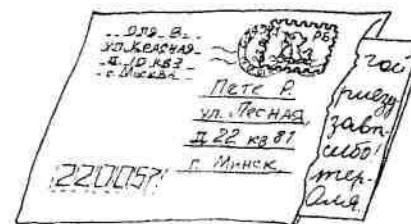 Оля В.
ул. Красная
д. 10 кв 3
г. Москва
РБ
Пете Р.
ул. Лесная,
д 22 кв 81
г. Минск
220057
гой
риезу
завт
сибо!
тер.
Оля.